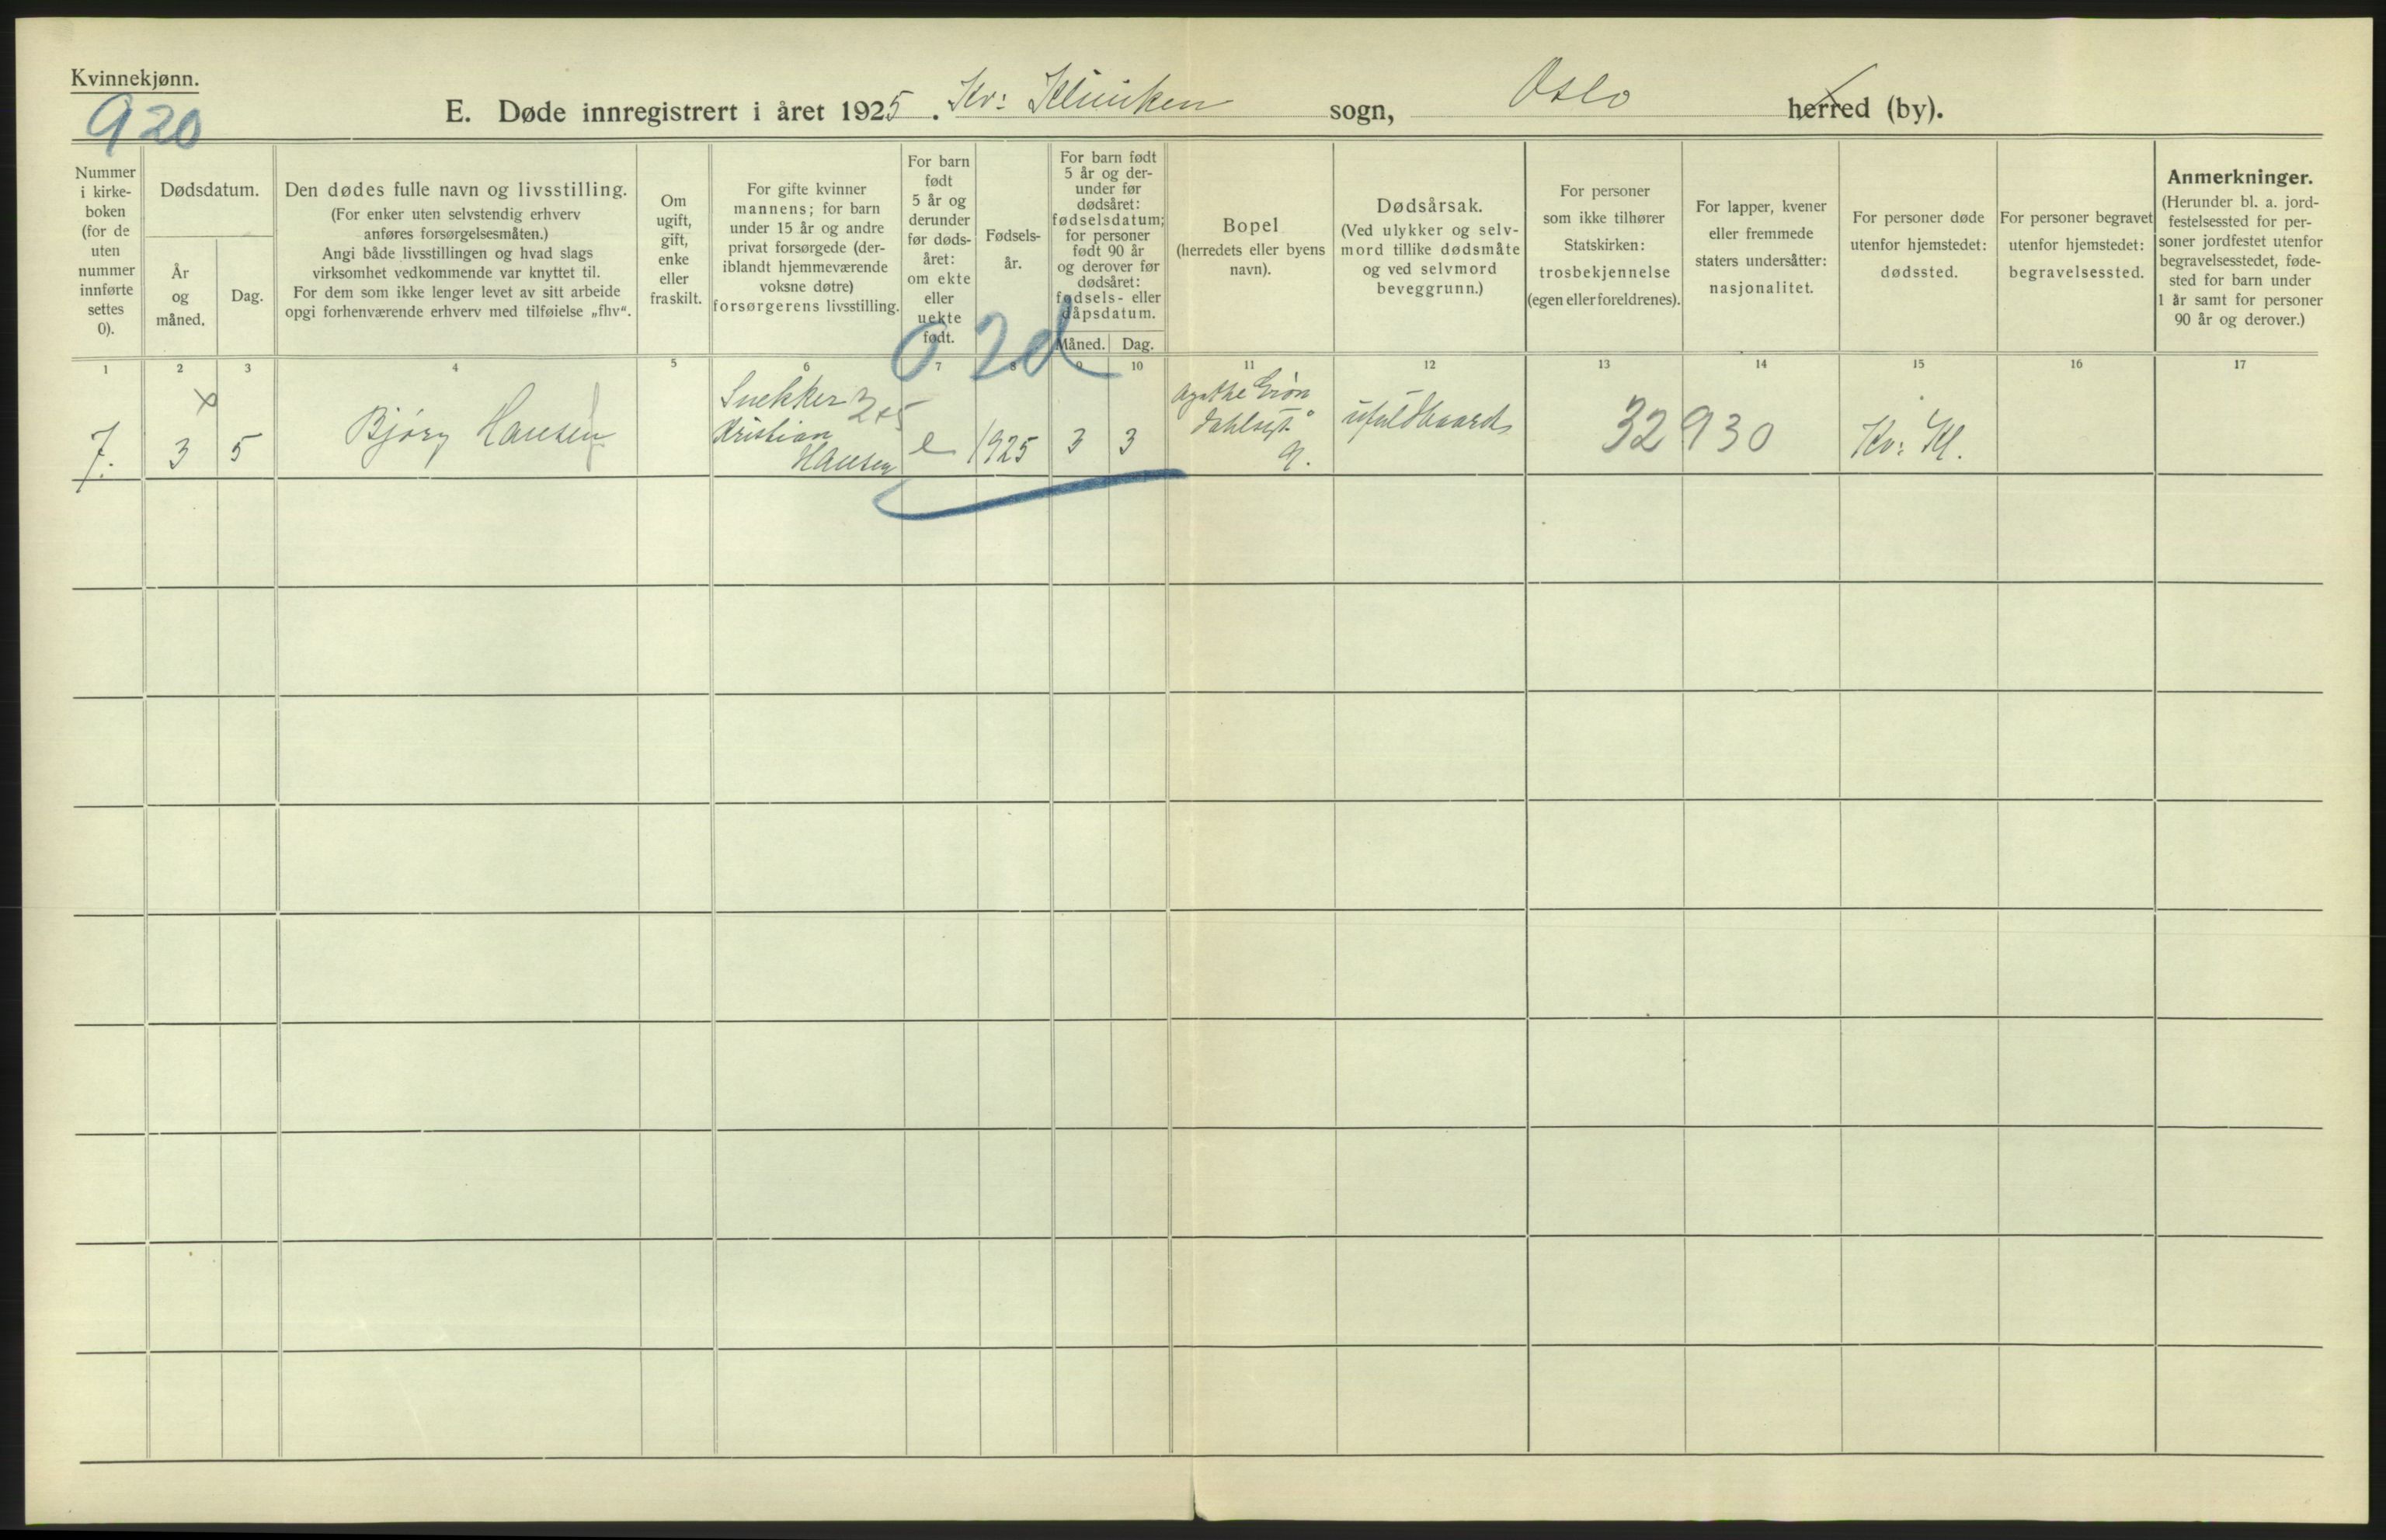 Kvinnekjønn.
920
E. Døde innregistrert i året 1925. Kv: Kliniken sogn, Oslo herred (by).
Nummer
i kirke-
boken
(for de
uten
nummer
innførte
settes
0).
Dødsdatum.
År
og
måned.
Dag.
Den dødes fulle navn og livsstilling.
(For enker uten selvstendig erhverv
anføres forsørgelsesmåten.)
Angi både livsstillingen og hvad slags
virksomhet vedkommende var knyttet til.
For dem som ikke lenger levet av sitt arbeide
opgi forhenværende erhverv med tilføielse „fhv“.
Om
ugift,
gift,
enke
eller
fraskilt.
For gifte kvinner
mannens; for barn
under 15 år og andre
privat forsørgede (der-
iblandt hjemmeværende
voksne døtre)
forsørgerens livsstilling.
For barn
født
5 år og
derunder
før døds-
året:
om ekte
eller
uekte
født.
Fødsels-
år.
For barn født
5 år og der-
under før
dødsåret:
fødselsdatum;
for personer
født 90 år
og derover før
dødsåret:
fødsels- eller
dåpsdatum.
Måned.
Dag.
Bopel
(herredets eller byens
navn).
Dødsårsak.
(Ved ulykker og selv-
mord tillike dødsmåte
og ved selvmord
beveggrunn.)
For personer
som ikke tilhører
Statskirken:
trosbekjennelse
(egen eller foreldrenes).
For lapper, kvener
eller fremmede
staters undersåtter:
nasjonalitet.
For personer døde
utenfor hjemstedet:
dødssted.
For personer begravet
utenfor hjemstedet:
begravelsessted.
Anmerkninger.
(Herunder bl. a. jord-
festelsessted for per-
soner jordfestet utenfor
begravelsesstedet, føde-
sted for barn under
1 år samt for personer
90 år og derover.)
0 2d
1 2 3 4 5 6 7 8 9 10 11 12 13 14 15 16 17
x
7.
3
5
Bjørg Hansen
Snekker 205
Kristian
Hansen
e
1925
3
3
Agathe Grøn
dahlsgt
9.
32930
Kv: Kl.